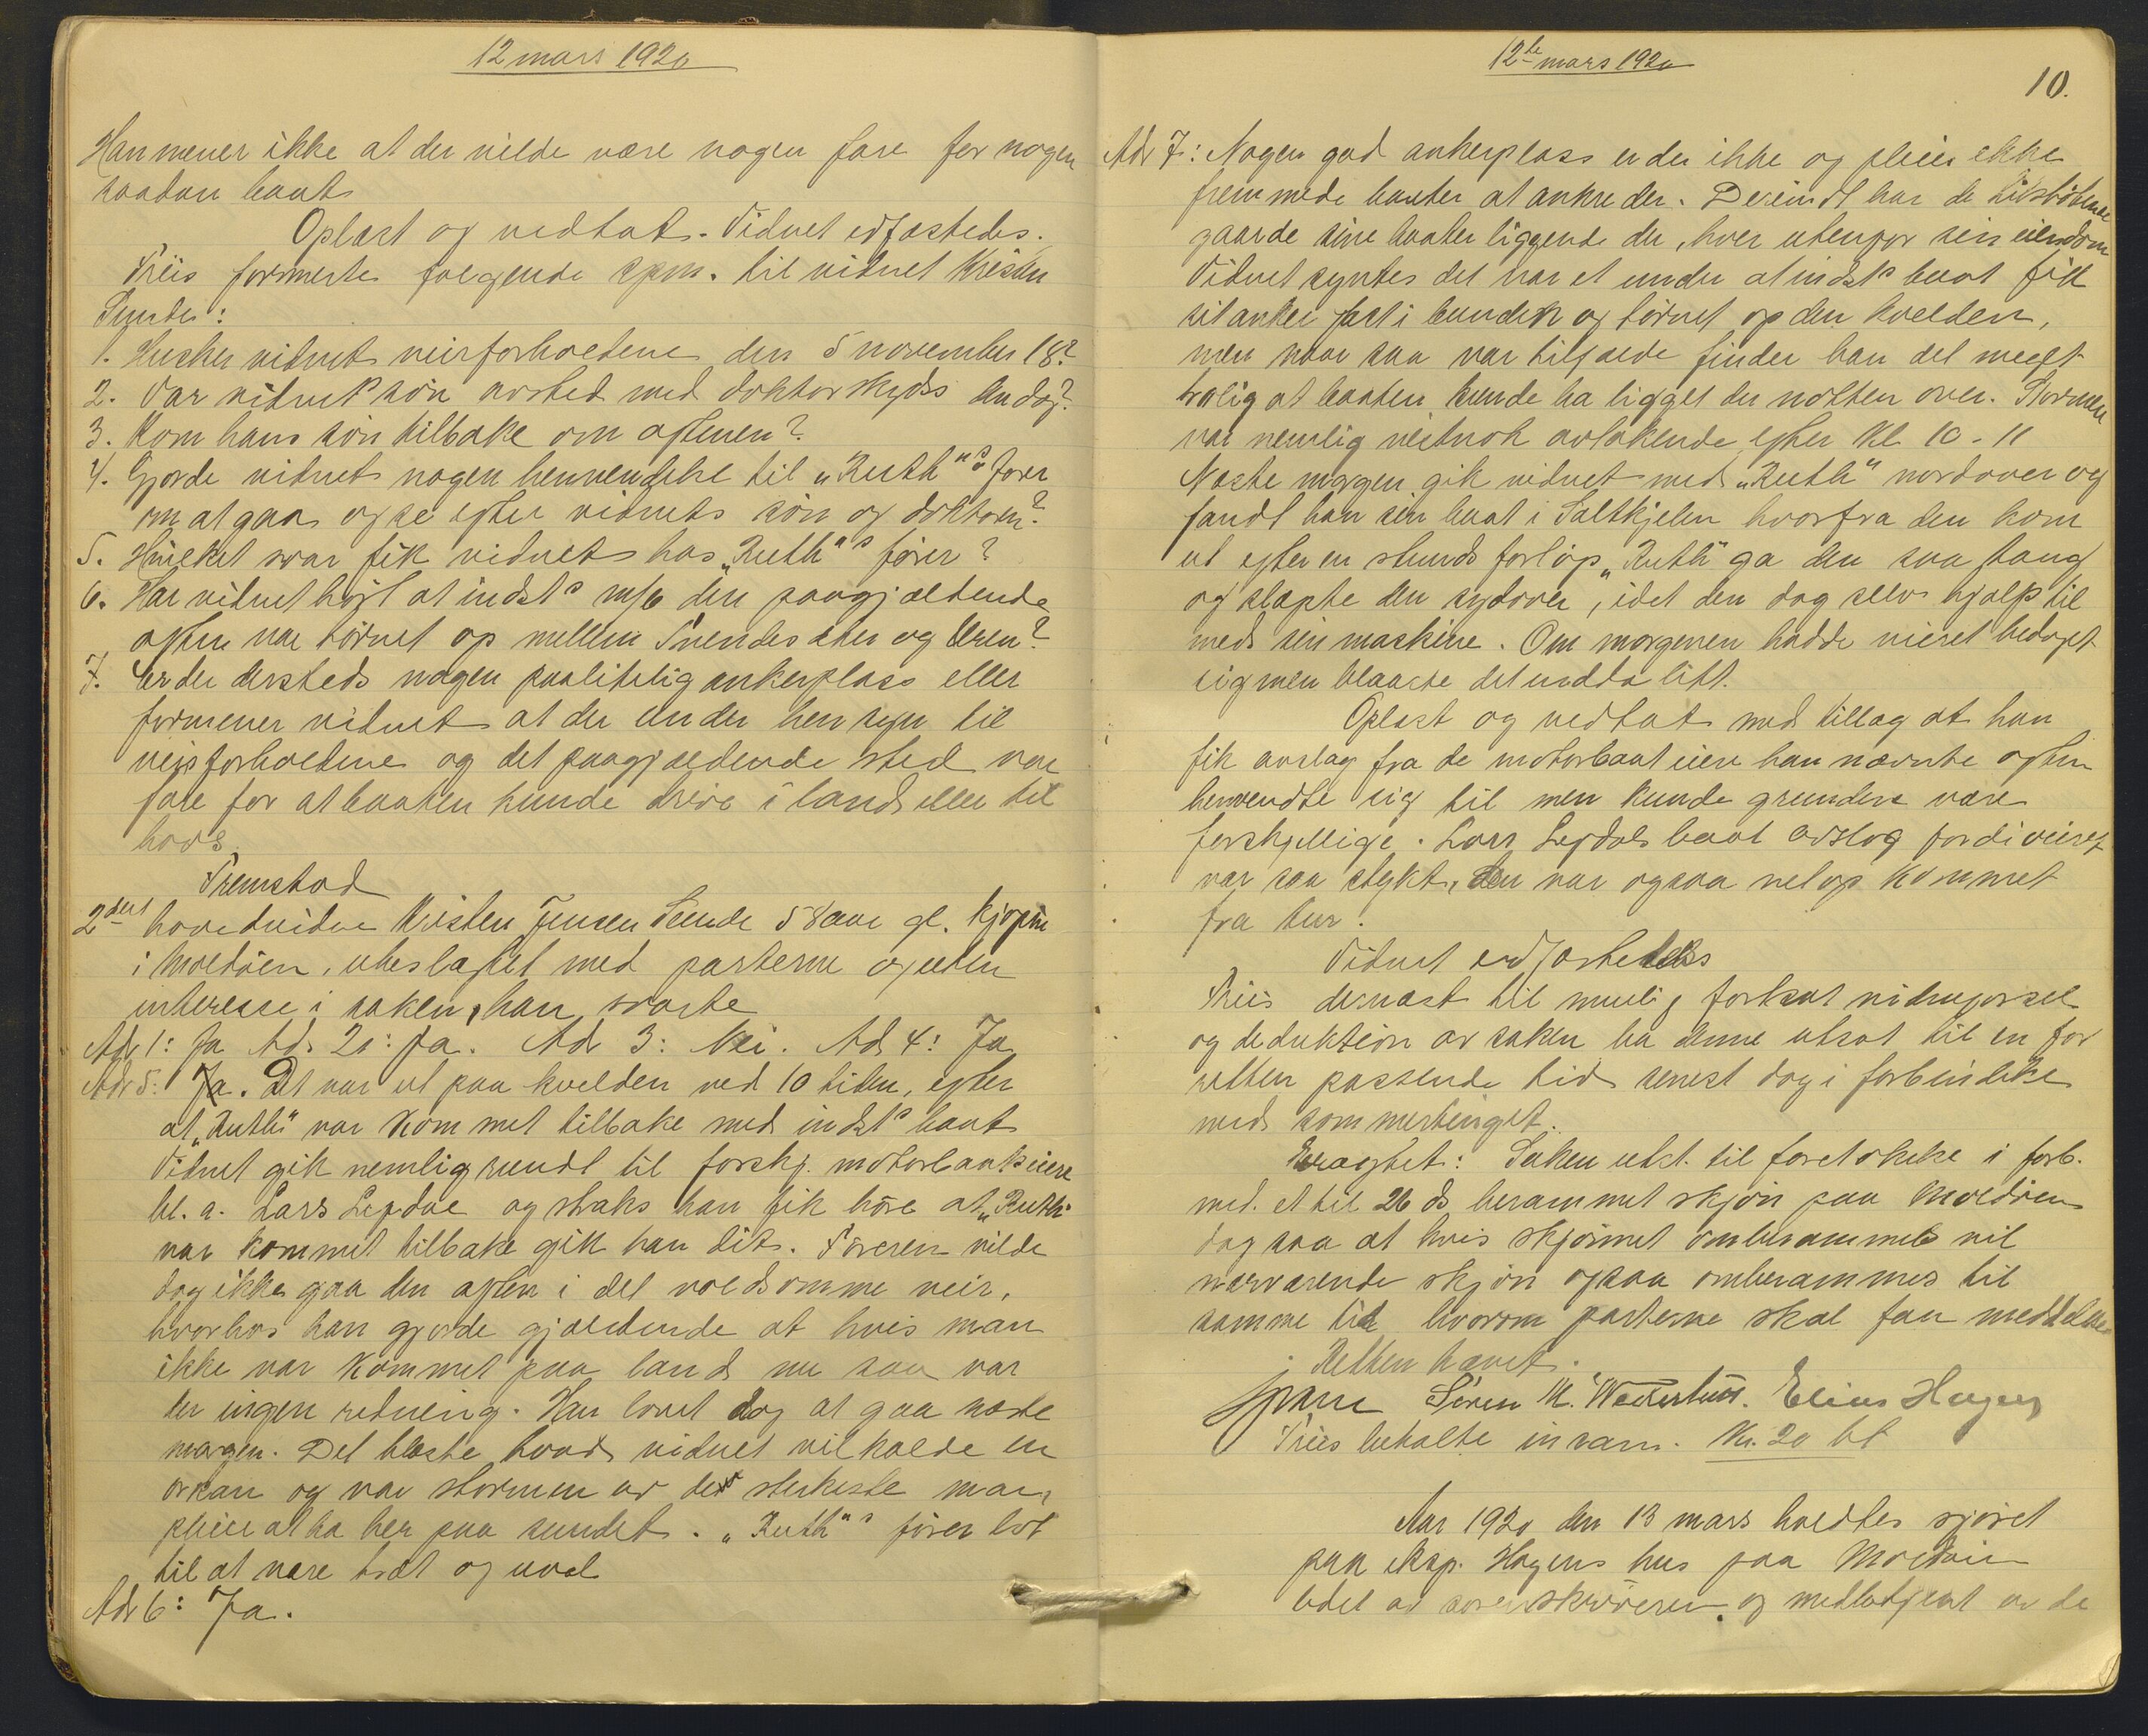 12 mars 1920
Han mener ikke at der vilde være nogen fare for nogen
saadan baat
Oplæst og vedtat. Vidnet edfæstedes.
Friis formerte følgende spm. til vidnet Kristen
Sunde:
1. Husker vidnet veirforholdene den 5 november 18?
2. Var vidnets søn avsted med doktorskyds den dag?
3. Kom hans søn tilbake om aftenen?
4. Gjorde vidnet nogen henvendelse til „Ruth"s fører
om at gaa og se efter vidnets søn og doktoren?
5. Hvilket svar fik vidnet hos „Ruth"s fører?
6. Har vidnet hørt at indst.s m/b den paagjældende
aften var tørnet op mellem Svendsæter og Uren?
7. Er der dersteds nogen paalitelig ankerplass eller
formener vidnet at der under hensyn til
veirforholdene og det paagjældende sted var
fare for at baaten kunde drive i land eller til
havs
Fremstod
2det hovedvidne Kristen Jensen Sunde 58 aar gl. kjøpm
i Moldøen, ubeslægtet med parterne og uten
interesse i saken, han svarte
Ad 1: Ja Ad 2: Ja. Ad 3: Nei. Ad 4: Ja
Ad 5: Ja. Det var ut paa kvelden ved 10 tiden, efter
at „Ruth" var kommet tilbake med indst.s baat
Vidnet gik nemlig rundt til forskj. motorbaateiere
bl. a. Lars Legdal og straks han fik høre at „Ruth"
var kommet tilbake gik han dit. Føreren vilde
dog ikke gaa den aften i det voldsomme veir,
hvorhos han gjorde gjældende at hvis man
ikke var kommet paa land nu saa var
der ingen redning. Han lovet dog at gaa næste
morgen. Det blæste hvad vidnet vil kalde en
orkan og var stormen av det sterkeste man
pleier at ha her paa sundet. „Ruth"s fører lot
til at være træt og uvel
Ad 6: Ja.
12te mars 1920
10.
Ad 7: Nogen god ankerplass er der ikke og pleier ikke
fremmede baater at ankre der. Derimot har de tilstøtende
gaarde sine baater liggende der, hver utenfor sin eiendom
Vidnet syntes det var et under at indst.s baat fik
sit anker fast i bunden og tørnet op den kvelden,
men naar saa var tilfælde finder han det meget
trolig at baaten kunde ha ligget der natten over. Stormen
var nemlig vistnok avtakende efter kl 10-11
Næste morgen gik vidnet med „Ruth" nordover og
fandt han sin baat i Saltkjelen hvorfra den kom
ut efter en stunds forløp. „Ruth" ga den saa fang
og slæpte den sydover, idet den dog selv hjalp til
med sin maskine. Om morgenen hadde veiret bedaget
sig men blaaste det endda litt.
Oplæst og vedtat med tillæg at han
fik avslag fra de motorbaateiere han nævnte aften
henvendte sig til men kunde grundene være
forskjellige. Lars Legdals baat avslog fordi veiret
var saa stygt, den var ogsaa netop kommet
fra tur.
Vidnet edfæstedes
Friis dernæst til mulig fortsat vidneførsel
og deduktion av saken ba denne utsat til en for
retten passende tid senest dog i forbindelse
med sommertinget.
Eragtet: Saken utst. til foretakelse i forb.
med et til 26 ds berammet skjøn paa Moldøen
dog saa at hvis skjønnet omberammes vil
nærværende skjøn ogsaa omberammes til
samme tid hvorom parterne skal faa meddelelse
Retten hævet.
Sparre Søren M. Elias Hagen
Friis betalte invarsl. Kr. 20 bet
Aar 1920 den 13 mars holdtes sjøret
paa eksp. Hagens hus paa Moldøen
ledet av sorenskriveren og medbetjent av de